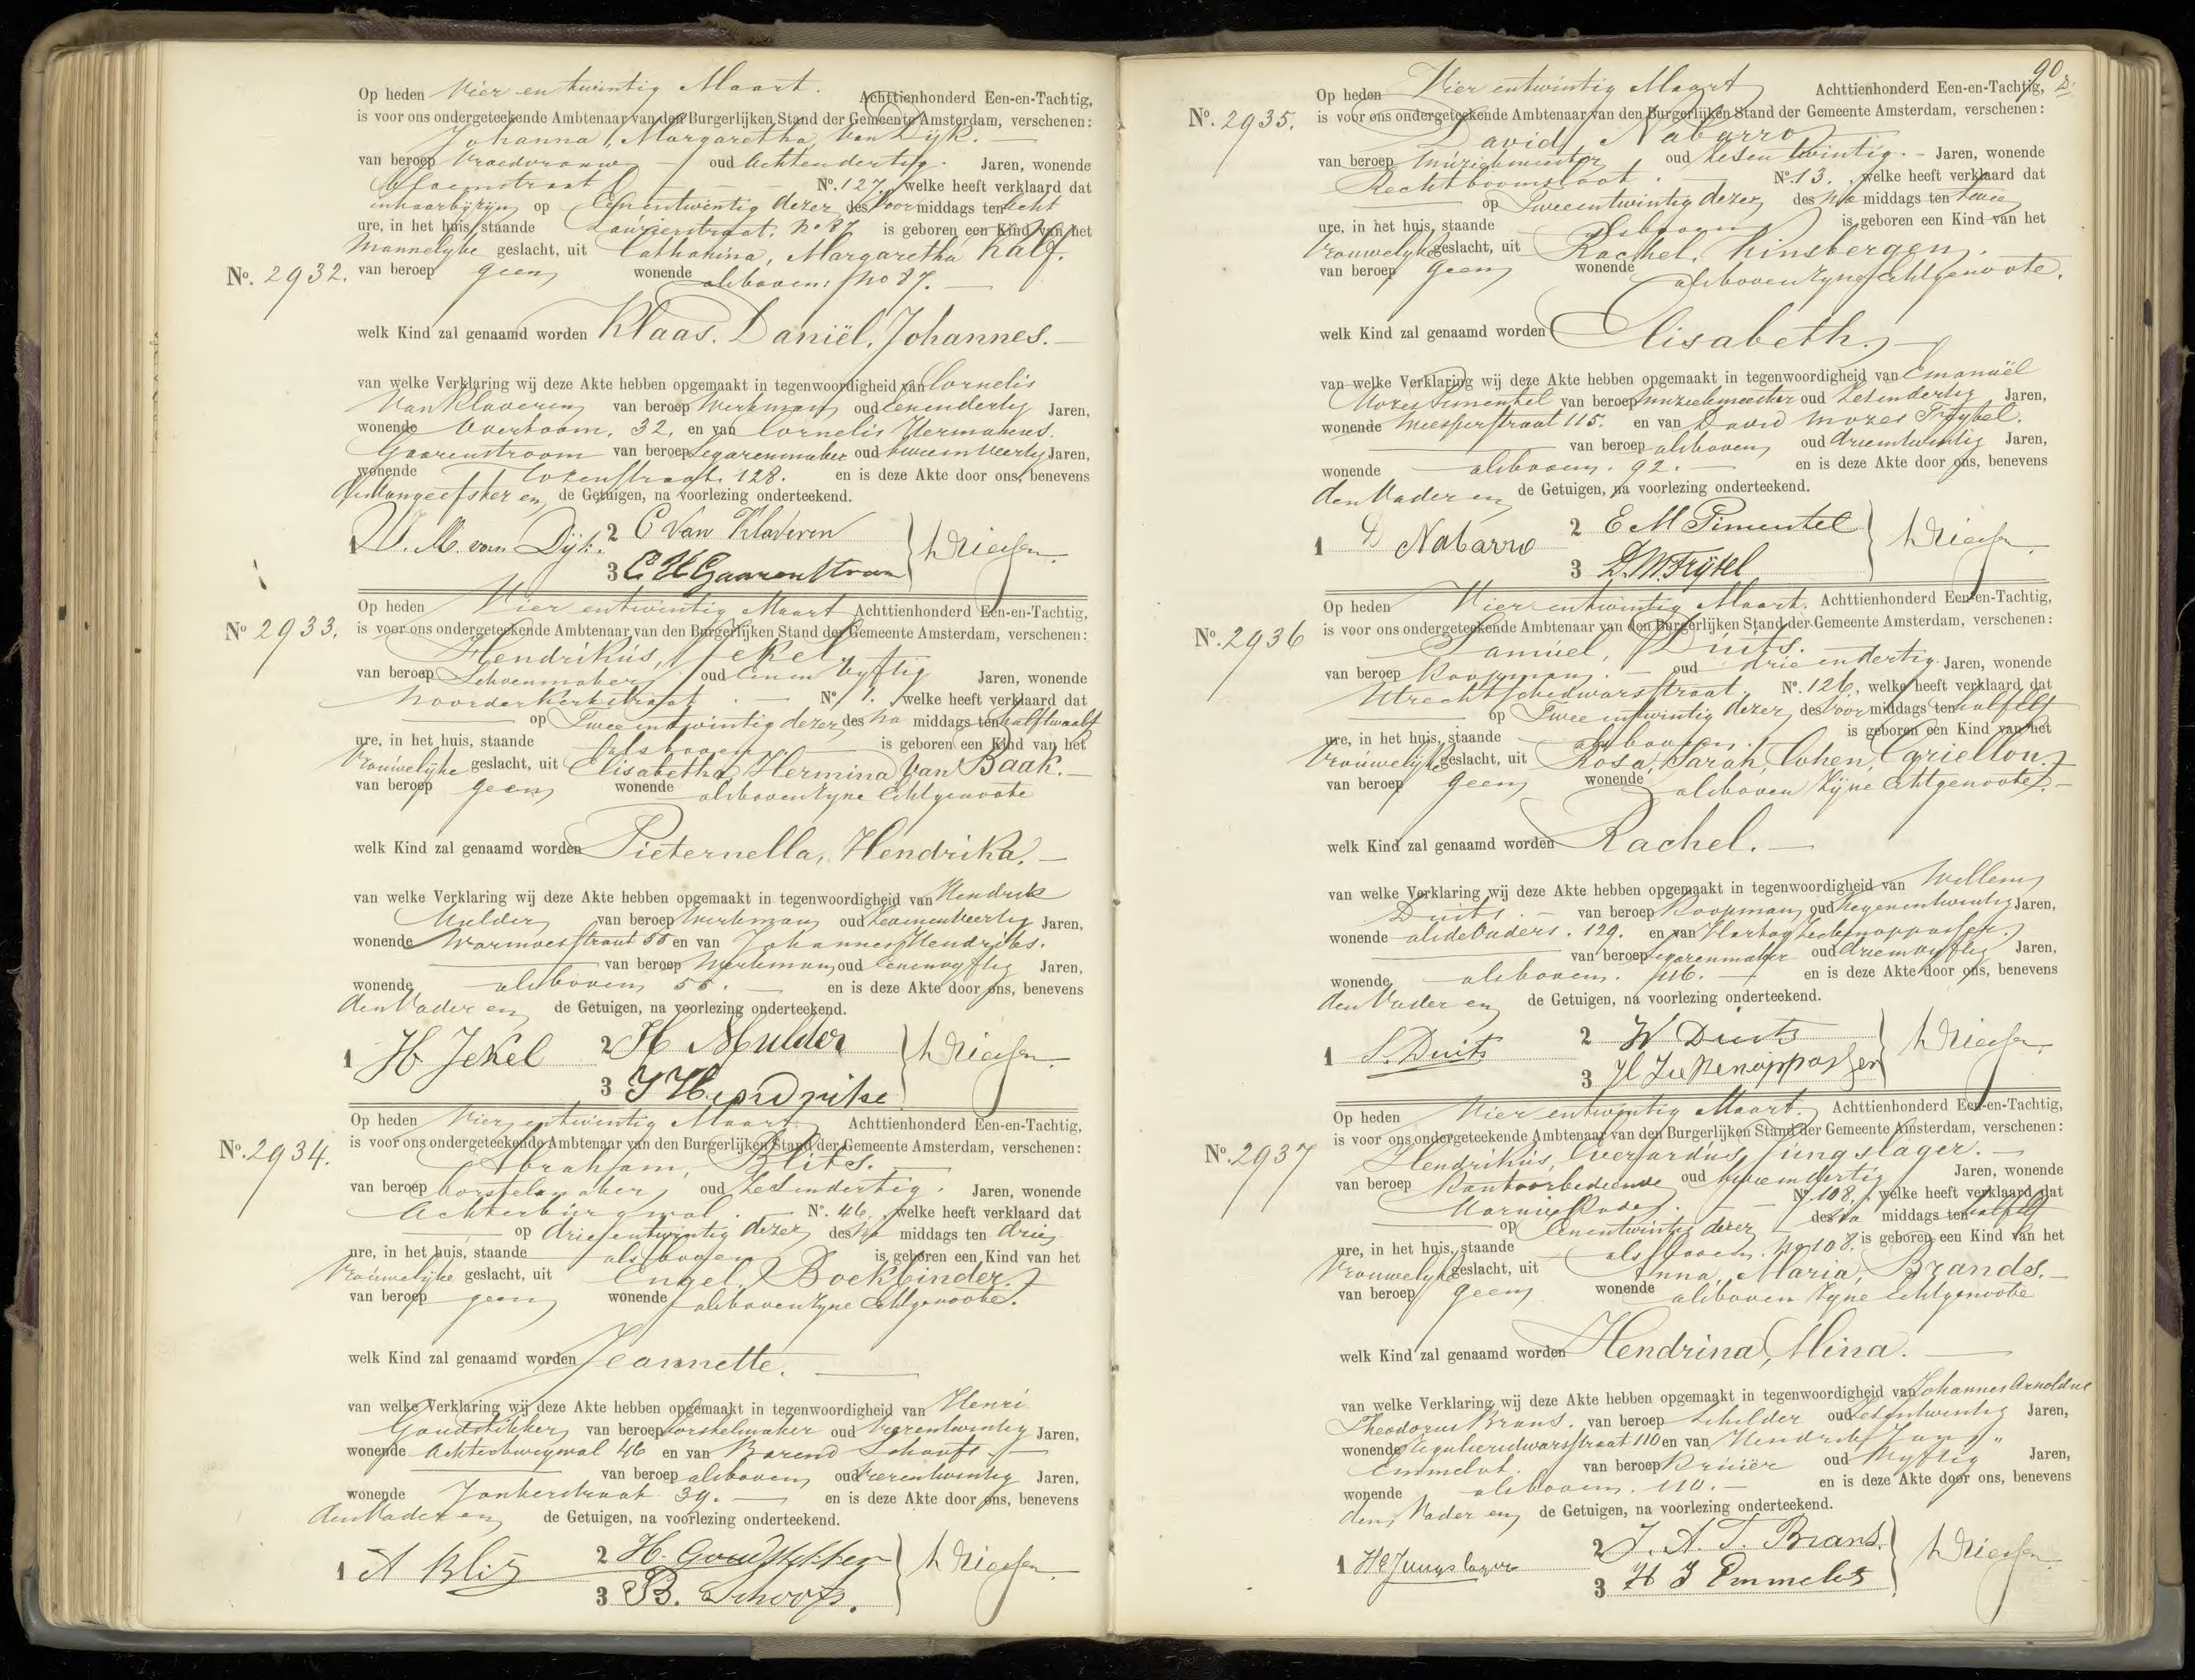 Op heden Vier en twintig Maart. Achttienhonderd Een-en-Tachtig,
is voor ons ondergeteekende Ambtenaar van den Burgerlijken Stand der Gemeente Amsterdam, verschenen:
Johanna, Margaretha van Dijk.
van beroep Vroedvrouw oud Achtendertig. Jaren, wonende
No. 127. welke heeft verklaard dat
inhaarbijzijn op Eenentwintig dezer des Voormiddags ten acht
ure, in het huis, staande Laurierstraat. No 87 is geboren een Kind van het
Mannelijke geslacht, uit Catharina, Margaretha Kalf.
No. 2932. van beroep geen wonende alsboven: No 87.
welk Kind zal genaamd worden Klaas. Daniël. Johannes.
van welke Verklaring wij deze Akte hebben opgemaakt in tegenwoordigheid van Cornelis
Van Klaveren van beroep Werkman oud Eenendertig Jaren,
wonende Overtoom. 32. en van Cornelis Hermanus.
Gaarenstroom van beroep Segarenmaker oud tweeenveertig Jaren,
wonende Rozenstraat. 128. en is deze Akte door ons, benevens
de Aangeefster en de Getuigen, na voorlezing onderteekend.
1 W. M. van Dijk. 2 C Van Klaveren
3 C H Gaarenstroom
Op heden Vier entwintig Maart Achttienhonderd Een-en-Tachtig,
No 2933. is voor ons ondergeteekende Ambtenaar van den Burgerlijken Stand der Gemeente Amsterdam, verschenen:
Hendrikus, Jekel.
van beroep Schoenmaker oud Eenenvyftig Jaren, wonende
Noorderkerkstraat No. 1. welke heeft verklaard dat
op Twee entwintig dezer des Na middags ten halftwaalf
ure, in het huis, staande alsboven is geboren een Kind van het
Vrouwelijke geslacht, uit Elisabetha, Hermina van Baak.
van beroep geen wonende alsboven zyne Echtgenoote
welk Kind zal genaamd worden Pieternella, Hendrika.
van welke Verklaring wij deze Akte hebben opgemaakt in tegenwoordigheid van Hendrik
Mulder van beroep Werkman oud Zevenenveertig Jaren,
wonende Warmoesstraat 55 en van Johannes Hendriks.
van beroep Werkman oud Eenenvyftig Jaren,
wonende alsboven 55. en is deze Akte door ons, benevens
den Vader en de Getuigen, na voorlezing onderteekend.
1 H Jekel 2 H Mulder
3 J Hendrikse
Op heden Vier entwintig Maart. Achttienhonderd Een-en-Tachtig,
No. 2934. is voor ons ondergeteekende Ambtenaar van den Burgerlijken Stand der Gemeente Amsterdam, verschenen:
Abraham, Blits.
van beroep Borstelmaker oud Zesendertig. Jaren, wonende
Achterburgwal. No. 46. welke heeft verklaard dat
op drie entwintig dezer des Na middags ten drie
ure, in het huis, staande alsboven is geboren een Kind van het
Vrouwelijke geslacht, uit Engel, Boekbinder.
van beroep geen wonende alsboven zyne Echtgenoote.
welk Kind zal genaamd worden Jeannette.
van welke Verklaring wij deze Akte hebben opgemaakt in tegenwoordigheid van Henri
Goudstikker van beroep borstelmaker oud Vierentwintig Jaren,
wonende Achterburgwal 46 en van Barend Schoofs
van beroep alsboven oud Vierentwintig Jaren,
wonende Jonkerstraat 39. en is deze Akte door ons, benevens
den Vader en de Getuigen, na voorlezing onderteekend.
1 A Blits 2 H. Goudstikker
3 B. Schoofs.
90
Op heden Vier entwintig Maart Achttienhonderd Een-en-Tachtig,
No. 2935. is voor ons ondergeteekende Ambtenaar van den Burgerlijken Stand der Gemeente Amsterdam, verschenen:
David, Nabarro
van beroep Muziekmeester oud Zesentwintig. Jaren, wonende
Rechtboomsloot. No. 13. welke heeft verklaard dat
op Tweeentwintig dezer des Na middags ten twee
ure, in het huis, staande alsboven is geboren een Kind van het
Vrouwelijke geslacht, uit Rachel, Kinsbergen.
van beroep geen wonende alsboven zyne Echtgenoote.
welk Kind zal genaamd worden Elisabeth.
van welke Verklaring wij deze Akte hebben opgemaakt in tegenwoordigheid van Emanuël
Mozes Pimentel van beroep muziekmeester oud Zesendertig Jaren,
wonende Weesperstraat 115. en van David Mozes Frijtel.
van beroep alsboven oud drieentwintig Jaren,
wonende alsboven. 92. en is deze Akte door ons, benevens
den Vader en de Getuigen, na voorlezing onderteekend.
1 D Nabarro 2 E M Pimentel
3 D. M. Frijtel
Op heden Vier entwintig Maart. Achttienhonderd Een-en-Tachtig,
No. 2936 is voor ons ondergeteekende Ambtenaar van den Burgerlijken Stand der Gemeente Amsterdam, verschenen:
Samuel, Duits.
van beroep Koopman. oud drie endertig Jaren, wonende
Utrechtschedwarsstraat. No. 126, welke heeft verklaard dat
op Twee entwintig dezer des Voor middags ten halfelf
ure, in het huis, staande alsboven. is geboren een Kind van het
Vrouwelijke geslacht, uit Rosa, Sarah, Cohen, Carillon.
van beroep geen wonende alsboven Zijne Echtgenoote.
welk Kind zal genaamd worden Rachel.
van welke Verklaring wij deze Akte hebben opgemaakt in tegenwoordigheid van Willem
Duits. van beroep Koopman oud Negenentwintig Jaren,
wonende alsde Ouders. 129. en van Hartog Ziekenoppasser.
van beroep Segarenmaker oud drieenvyftig Jaren,
wonende alsboven. en is deze Akte door ons, benevens
den Vader en de Getuigen, na voorlezing onderteekend.
1 S. Duits 2 W Duits
3 H Ziekenoppasser
Op heden Vier entwintig Maart. Achttienhonderd Een-en-Tachtig,
No. 2937 is voor ons ondergeteekende Ambtenaar van den Burgerlijken Stand der Gemeente Amsterdam, verschenen:
Hendrikus, Everardus, Jungslager.
van beroep Kantoorbediende oud tweeendertig Jaren, wonende
Marnixkade. No. 108. welke heeft verklaard dat
op Eenentwintig dezer des Na middags ten halfelf
ure, in het huis, staande alsboven. No 108. is geboren een Kind van het
Vrouwelijke geslacht, uit Anna, Maria, Brands.
van beroep geen wonende alsboven Zyne Echtgenoote
welk Kind zal genaamd worden Hendrina, Mina.
van welke Verklaring wij deze Akte hebben opgemaakt in tegenwoordigheid van Johannes Arnoldus
Theodorus Brans. van beroep Schilder oud Zesentwintig Jaren,
wonende Reguliersdwarsstraat 110 en van Hendrik Jans
Emmelot. van beroep Kruier oud Vyftig Jaren,
wonende alsboven. 110. en is deze Akte door ons, benevens
den Vader en de Getuigen, na voorlezing onderteekend.
1 HE Jungslager 2 J. A. T. Brans.
3 H J Emmelot